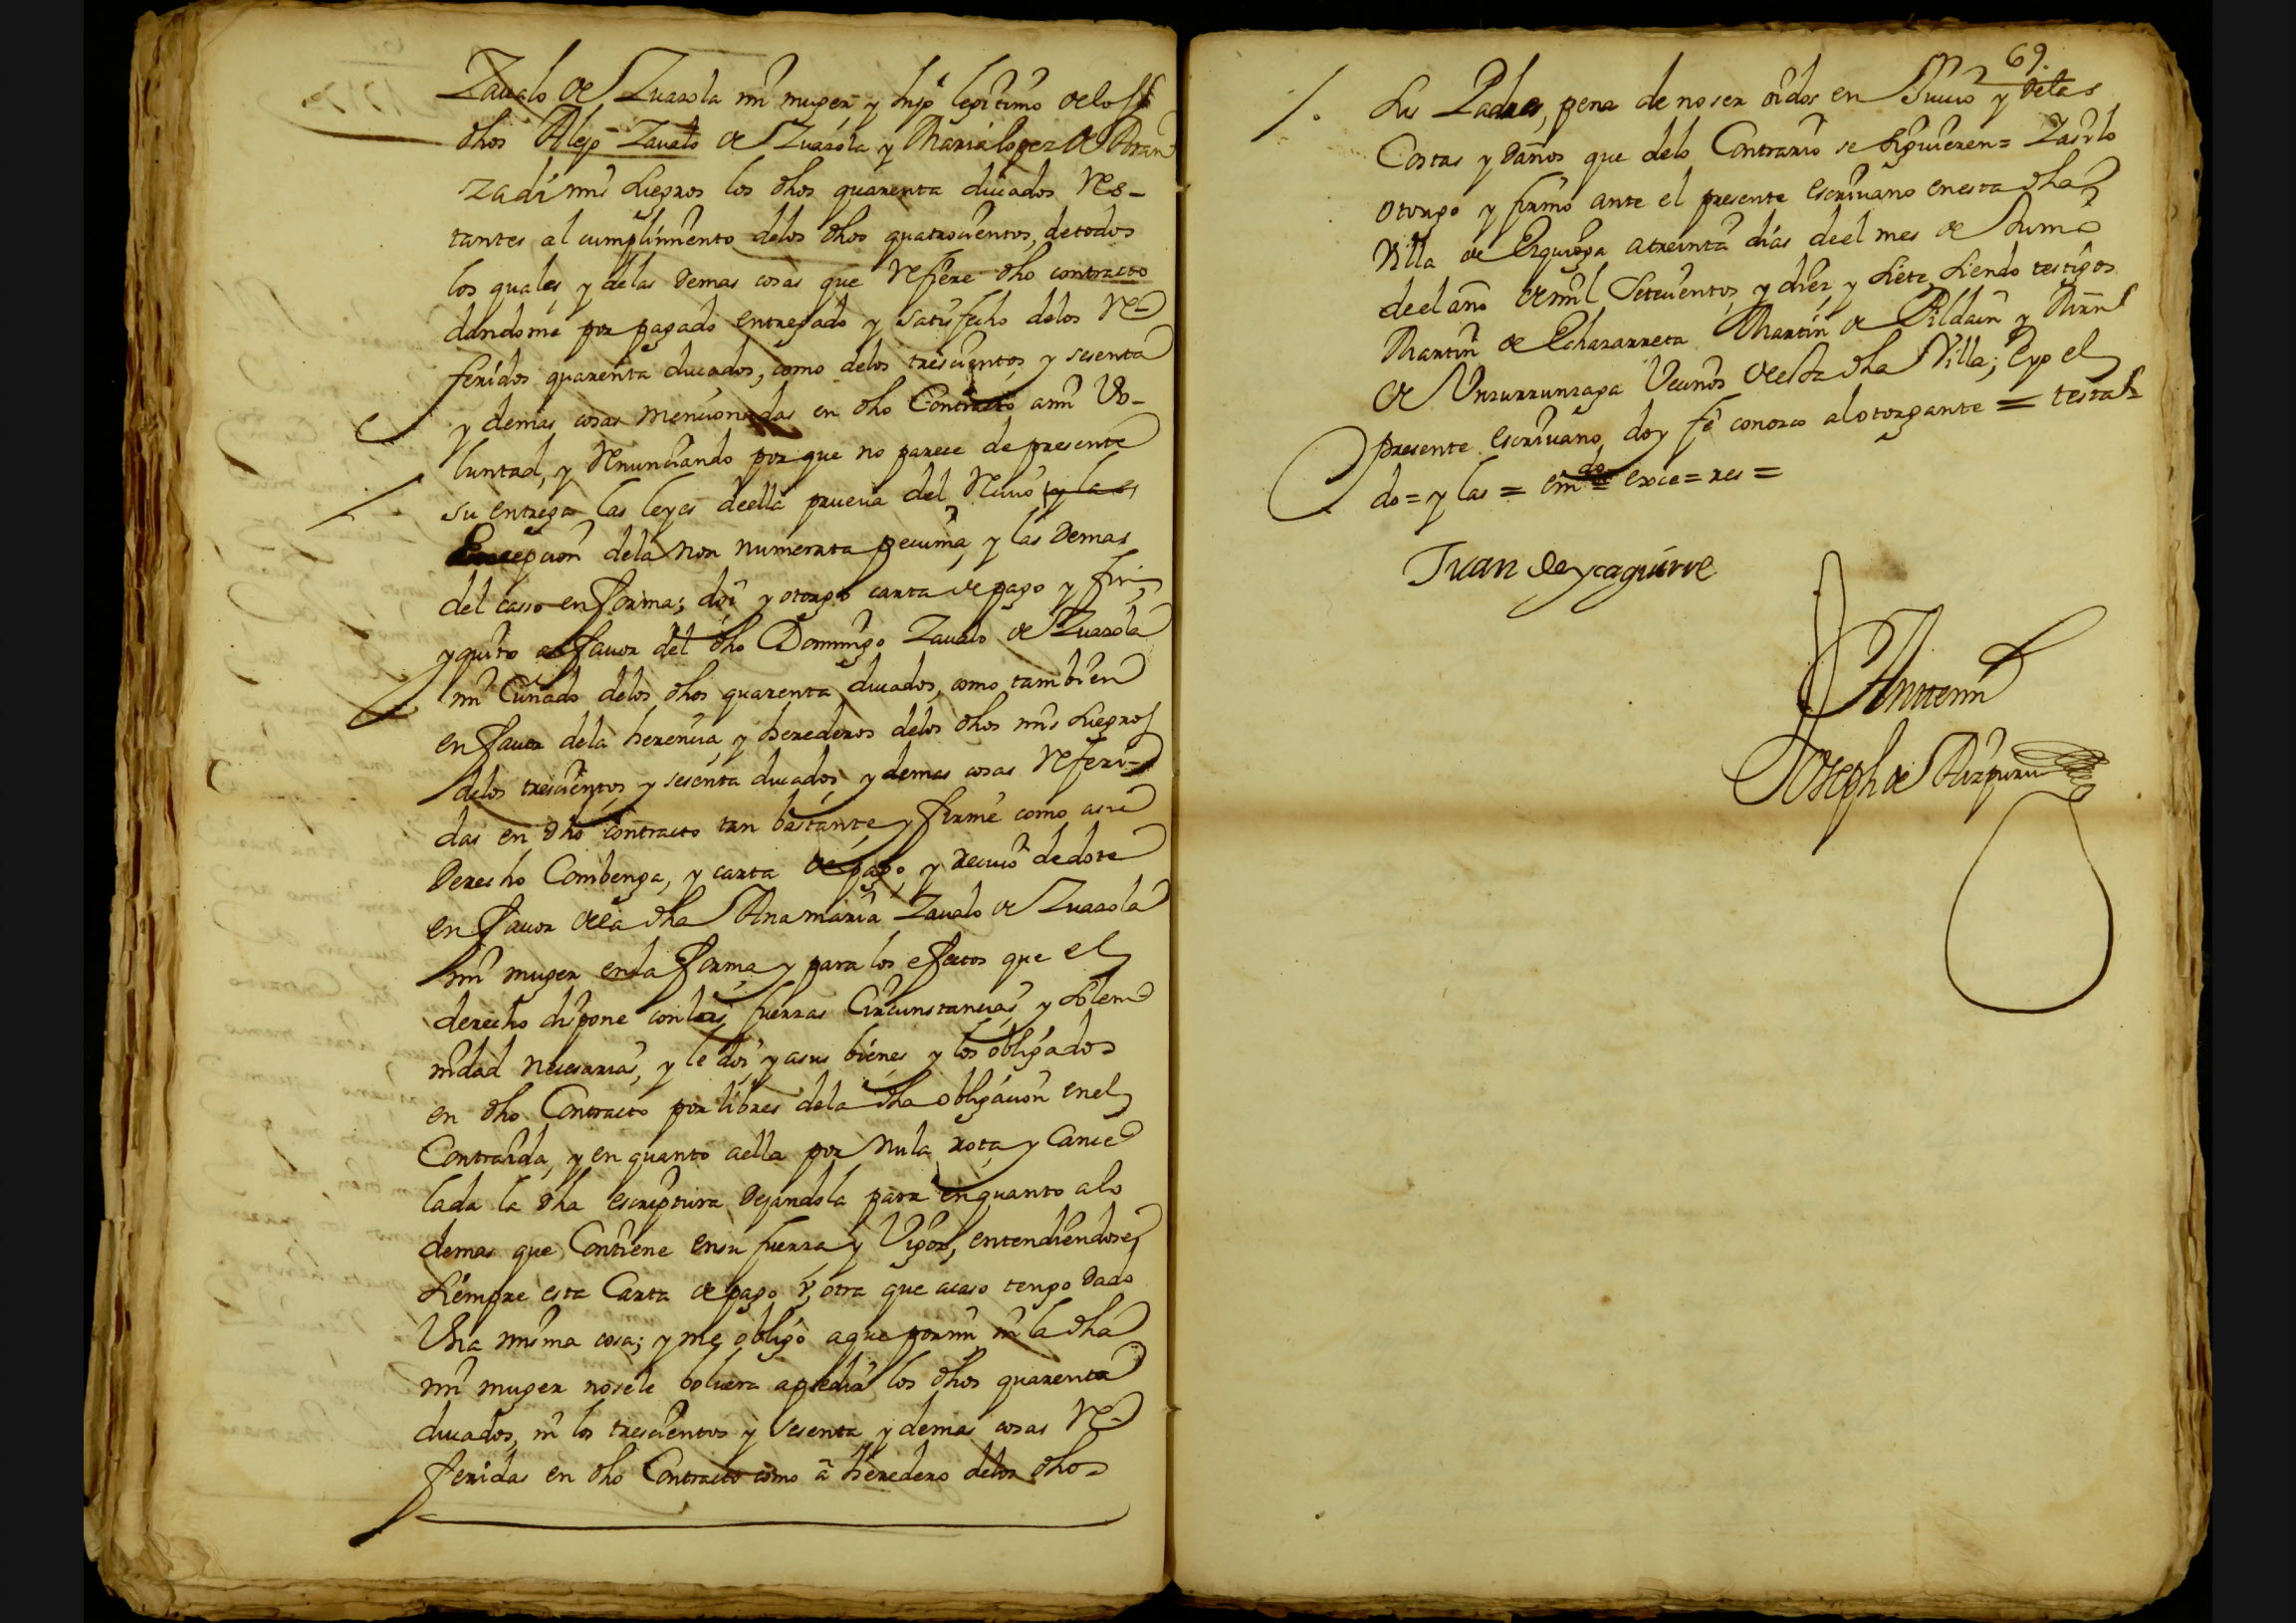 Zaualo de Zuazola mi muger, y hijo legitimo delos
dhos Alejo Zaualo de Zuazola y Maria lopez de Aran
zadi mis suegros los dhos quarenta ducados res-
tantes al cumplimiento delos dhos quatrocientos, de todos
los quales y delas demas cosas que refiere dho contracto
dandome por pagado entregado y satisfecho delos re-
feridos quarenta ducados, como delos trescientos y sesenta
y demas cosas mencionadas en dho Contracto ami vo-
luntad, y renunciando por que no parece de presente
su entrega las leyes deella prueua del reciuo y las
Excepcion dela non numerata pecunia, y las demas
del casso en forma; doi y otorgo carta de pago y fin
y quito a fauor del dho Domingo Zaualo de Zuazola
mi Cuñado delos dhos quarenta ducados, como tambien
en fauor dela herencia y herederos delos dhos mis suegros
delos trescientos y sesenta ducados y demas cosas referi-
das en dho contracto tan bastante y firme como a su
derecho Combenga, y carta de pago, y reciuo de dote
en fauor dela dha Ana maria Zaualo de Zuazola
mi muger en la forma y para los efectos que el
derecho dispone con las fuerzas Circunstancias y solem
nidad necesarias, y le doi y a sus bienes y los obligados
en dho Contracto por libres dela dha obligacion en el
Contraida, y en quanto aella por nula rota y Cance
lada la dha escriptura dejandola para en quanto alo
demas que Contiene en su fuerza y vigor, entendiendose
siempre esta Carta de pago y otra que acaso tengo dado
Una misma cosa; y me obligo a que por mi ni la dha
mi muger nosele boluera apedir los dhos quarenta
ducados, ni los trescientos y sesenta y demas cosas re-
feridas en dho Contracto como a heredero delos dhos
69.
sus Padres, pena de no ser oidos en Juicio y delas
Costas y daños que delo Contrario se siguieren = Y asi lo
otorgo y firmo ante el presente escriuano en esta dha
Villa de Ezquioga a treinta dias de el mes de Junio
de el año de mil Setecientos y diez y siete siendo testigos
Martin de Echazarreta Martin de Pildain y
de Unzurrunzaga Vecinos de esta dha Villa; Eyo el
presente escriuano doy fe conozco al otorgante = testado
do = y las = em do = exce = res =
Juan de ycaguirre
Ante mi
Joseph de Aizpuru